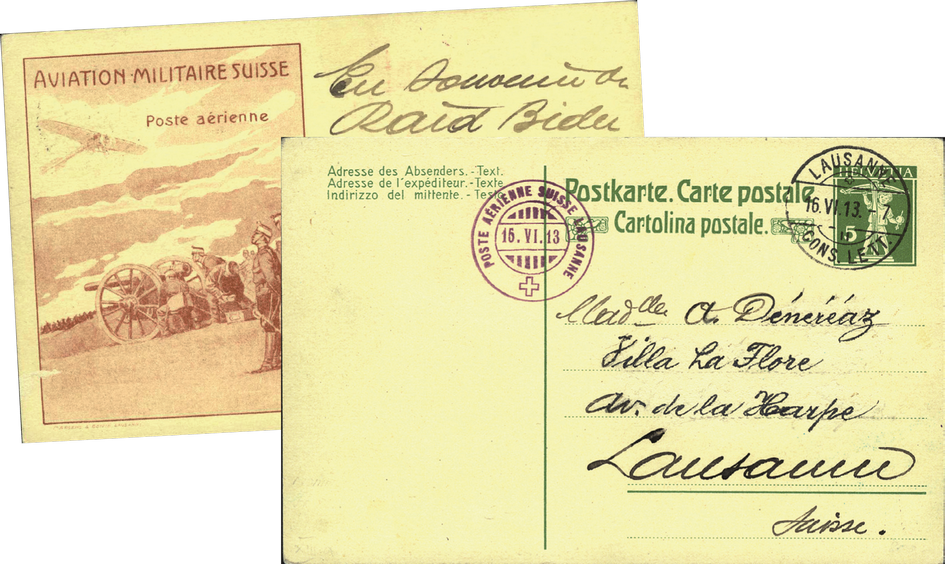 AVIATION·MILITAIRE SUISSE
Poste aérienne
En Souvenir du
Raid Bider
Adresse des Absenders.-Text.
Adresse de l'expéditeur.-Texte
Indirizzo del mittente.-Testo
POSTE AÉRIENNE SUISSE LAUSANNE
16.VI.13
Postkarte. Carte postale
Cartolina postale.
LAUSANNE
16.VI.13.-7
CONS. LETT.
HELVETIA
5
Mad^lle A. Dénéréaz
Villa La Flore
Av. de la Harpe
Lausanne
Suisse.